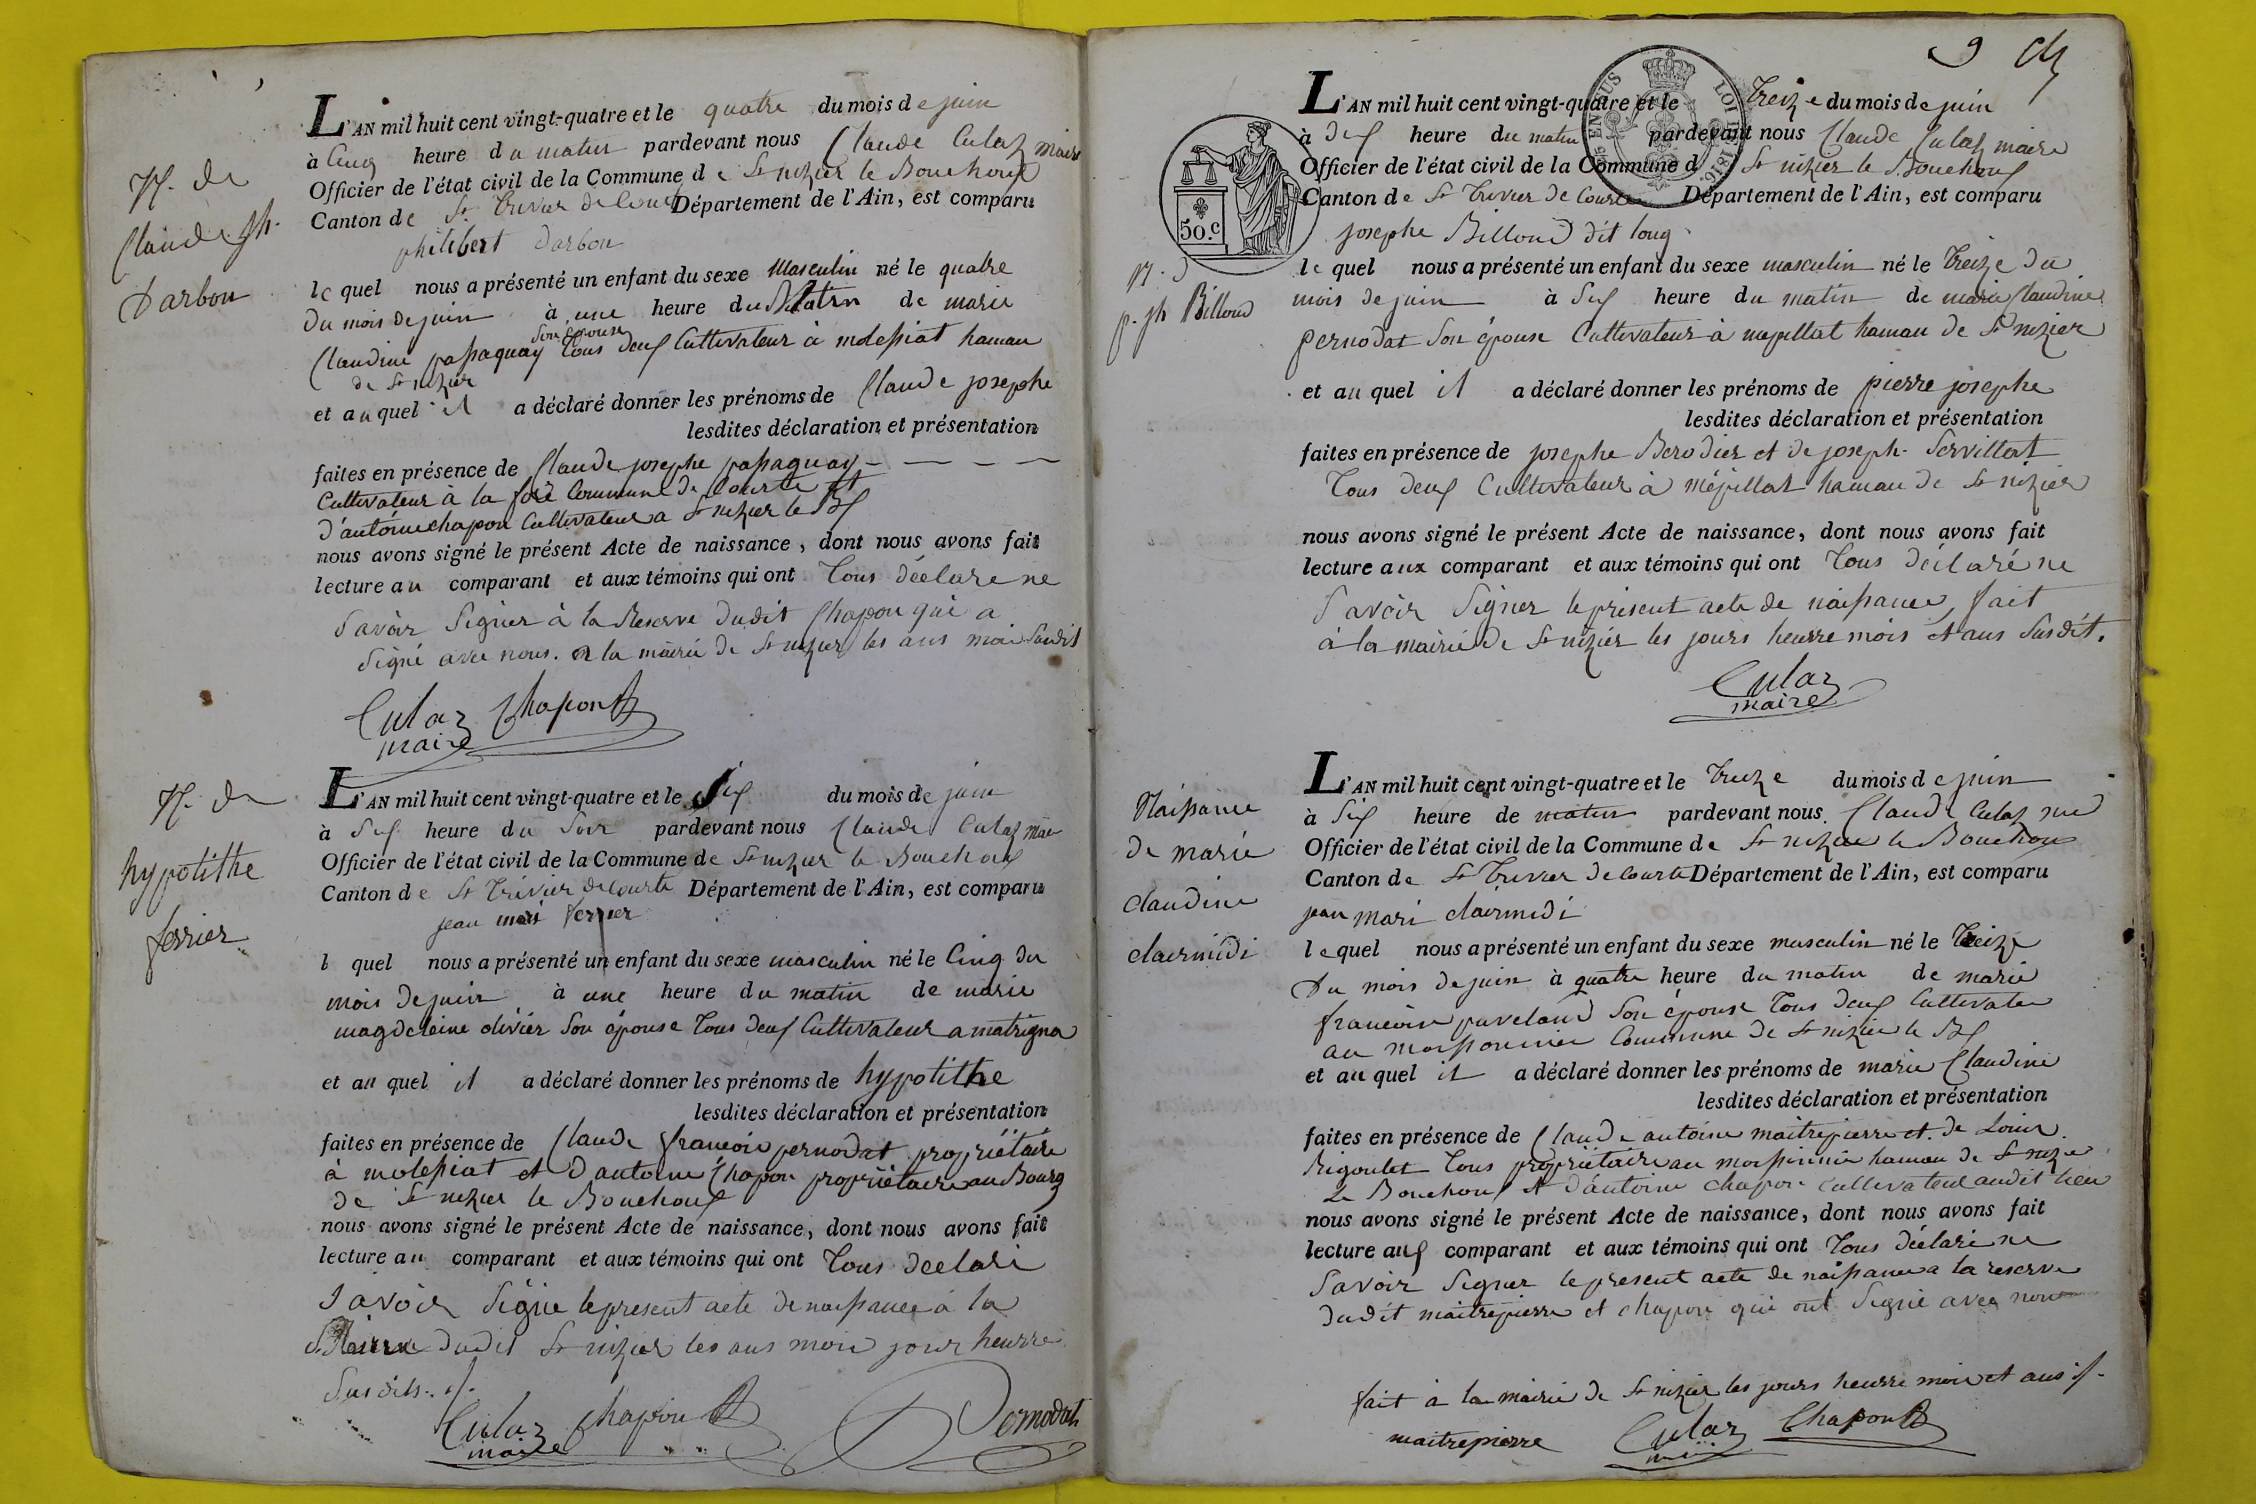 N. de
Claude jh.
Darbon
L'AN mil huit cent vingt-quatre et le quatre du mois de juin
à Cinq heure du matin pardevant nous Claude Culaz maire
Officier de l'état civil de la Commune de St nizier le Bouchoux
Canton de St Trivier de Courtes Département de l'Ain, est comparu
philibert Darbon
lequel nous a présenté un enfant du sexe Masculin né le quatre
du mois de juin à une heure du Matin de marie
son épouse
Claudine passaquay tous deux Cultivateur à molessiat hamau
de St nizier
et auquel il a déclaré donner les prénoms de Claude josephe
lesdites déclaration et présentation
faites en présence de Claude josephe passaquay
Cultivateur à la Commune de Courte et
d'antoine chapon Cultivateur a St nizier le Bx
nous avons signé le présent Acte de naissance, dont nous avons fait
lecture au comparant et aux témoins qui ont Tous déclare ne
Savoir Signer à la Reserve dudit Chapon qui a
Signé avec nous. a la mairie de St nizier les ans moi Susdit
Culaz Chapon
maire
N. de
hypolithe
ferrier
L'AN mil huit cent vingt-quatre et le Six du mois de juin
à Six heure du Soir pardevant nous Claude Culaz mae
Officier de l'état civil de la Commune de St nizier le Bouchoux
Canton de St Trivier de Courte Département de l'Ain, est comparu
jean mari ferrier
l quel nous a présenté un enfant du sexe masculin né le Cinq du
mois de juin à une heure du matin de marie
magdeleine olivier Son épouse Tous deux Cultivateur a matrigna
et au quel il a déclaré donner les prénoms de hypolithe
lesdites déclaration et présentation
faites en présence de Claude francois pernodat propriétaire
à molessiat et D'antoine Chapon propriétaire au Bourg
de St nizier le Bouchoux
nous avons signé le présent Acte de naissance, dont nous avons fait
lecture au comparant et aux témoins qui ont Tous declaré
Savoir Signé le present acte de naissance à la
Mairie dudit St nizier les ans mois jour heurre
Susdits.
Culaz chapon Pernodat
maire
9
L'AN mil huit cent vingt-quatre et le Treize du mois de juin
à Six heure du matin pardevant nous Claude Culaz maire
Officier de l'état civil de la Commune d St nizier le Bouchoux
Canton de St Trivier de Courte Département de l'Ain, est comparu
LOI DE 1816.
50.c
josephe Billoud dit long
N. d
p. jh Billoud
le quel nous a présenté un enfant du sexe masculin né le Treize du
mois de juin à Six heure du matin de marie Claudine
pernodat Son épouse Cultivateur à mépillat hamau de St nizier
et au quel il a déclaré donner les prénoms de pierre josephe
lesdites déclaration et présentation
faites en présence de josephe Berodier et de joseph Servillat
Tous deux Cultivateur à mépillat hamau de St nizier
nous avons signé le présent Acte de naissance, dont nous avons fait
lecture aux comparant et aux témoins qui ont Tous déclaré ne
Savoir Signer le présent acte de naissance, fait
à la mairie de St nizier les jours heurre mois et ans Susdit.
Culaz
maire
Naissance
de marie
claudine
clairmidi
L'AN mil huit cent vingt-quatre et le Treize du mois de juin
à Six heure de matin pardevant nous Claude Culaz
Officier de l'état civil de la Commune de St nizier le Bouchoux
Canton de St Trivier de Courte Département de l'Ain, est comparu
jean mari clairmidi
lequel nous a présenté un enfant du sexe masculin né le Treize
Du mois de juin à quatre heure du matin de marie
francoise Son épouse Tous deux Cultivateu
au Commune de St nizier le Bx
et au quel il a déclaré donner les prénoms de marie Claudine
lesdites déclaration et présentation
faites en présence de Claude antoine maitrepierre et de Louis
Rigoulet Tous propriétaire au hamau de St nizie
Le Bouchoux et d'antoine chapon cultivateur audit lieu
nous avons signé le présent Acte de naissance, dont nous avons fait
lecture aux comparant et aux témoins qui ont Tous déclaré ne
Savoir Signer le present acte de naissance a la reserve
dudit maitrepierre et chapon qui ont Signé avec nous
fait à la mairie de St nizier les jours heurre mois et ans
maitrepierre Culaz Chapon